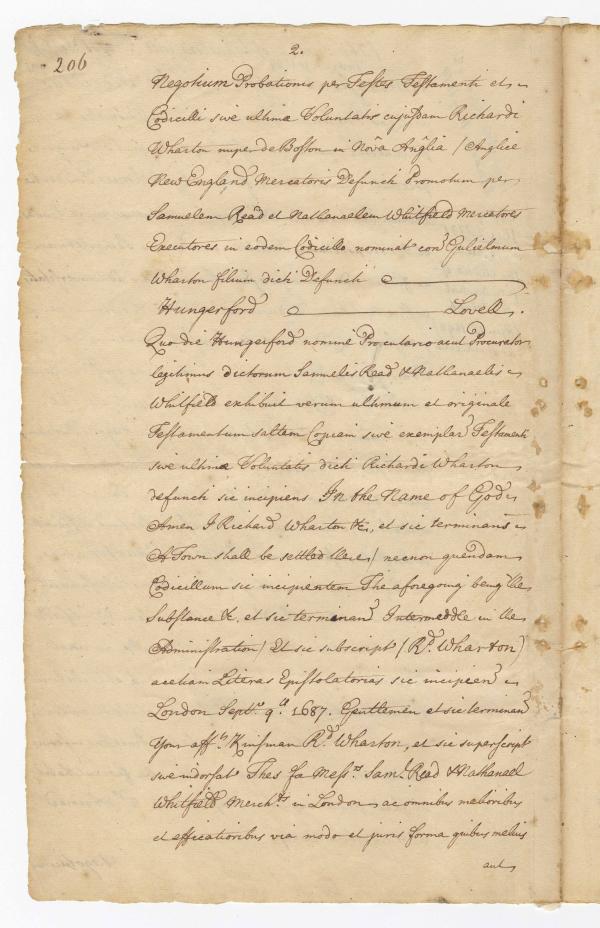 206
2.
Negotium Probationis per Testes Testamenti et
Codicilli sive ultimæ Voluntatis cujusdam Richardi
Wharton nuper de Boston in Nova Anglia / Anglice
New England Mercatoris Defuncti Promotum per
Samuelem Read et Nathanaelem Whitfield Mercatores
Executores in eodem Codicillo nominat con Gulielmum
Wharton filium dicti Defuncti
Hungerford Lovell.
Quo die Hungerford nomine Procuratorio ac ut Procurator
legitimus dictorum Samuelis Read & Nathanaelis
Whitfield exhibuit verum ultimum et originale
Testamentum saltem Copiam sive exemplar Testamenti
sive ultimæ Voluntatis dicti Richardi Wharton
defuncti sic incipiens In the Name of God
Amen I Richard Wharton &c, et sic terminans
A Town shall be settled there / necnon quendam
Codicillum sic incipientem The aforegoing being the
Substance &c, et sic terminan Intermeddle in the
Administration / Et sic subscript (Rd. Wharton)
ac etiam Literas Epistolatorias sic incipien
London Septr. 9th. 1687. Gentlemen et sic terminan
Your afft. Kinsman Rd. Wharton, et sic superscript
sive indorsat Thes fa Messrs. Saml. Read & Nathanael
Whitfield Merchts in London, ac omnibus melioribus
et efficatioribus via modo et juris forma quibus melius
aut